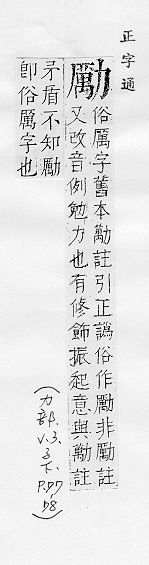 正字通
勵
俗厲字舊本勱註引正譌俗作勵非勵註
又改音例勉力也有修飾振起意與勱註
矛盾不知勵
卽俗厲字也
(力部. V.3. 子下. P.77, 78)